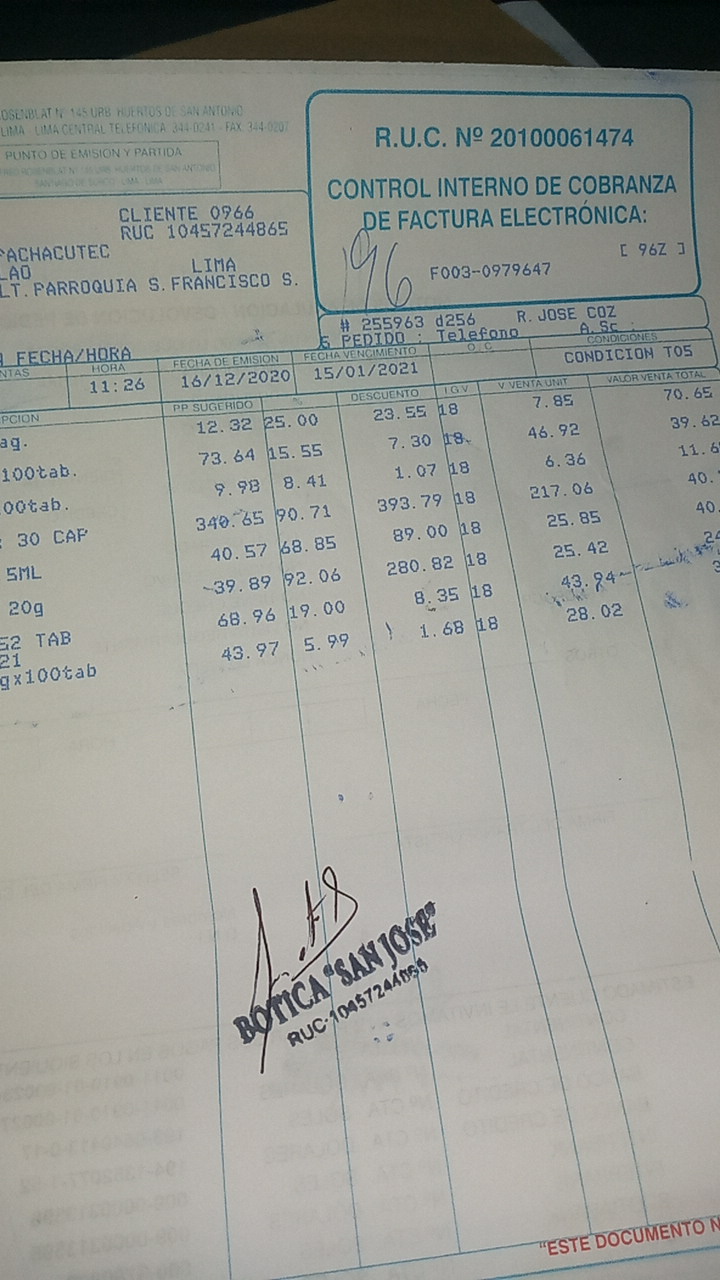 OSENBLAT Nº 145 URB. HUERTOS DE SAN ANTONIO
LIMA - LIMA CENTRAL TELEFONICA 344-0241 - FAX 344-0207
PUNTO DE EMISION Y PARTIDA
R.U.C. Nº 20100061474
CONTROL INTERNO DE COBRANZA
DE FACTURA ELECTRÓNICA:
[ 96Z ]
F003-0979647
196
CLIENTE 0966
RUC 10457244865
PACHACUTEC
LAO LIMA
LT.PARROQUIA S.FRANCISCO S.
# 255963 d256 R.JOSE COZ
PEDIDO : Telefono A.Sc
FECHA/HORA
NTAS HORA FECHA DE EMISION FECHA VENCIMIENTO O. C. CONDICIONES
11:26 16/12/2020 15/01/2021 CONDICION T05
PCION PP SUGERIDO % DESCUENTO I.G.V V. VENTA UNIT. VALOR VENTA TOTAL
ag. 12.32 25.00 23.55 18 7.85 70.65
100tab. 73.64 15.55 7.30 18 46.92 39.62
00tab. 9.98 8.41 1.07 18 6.36 11.6
30 CAP 340.65 90.71 393.79 18 217.06 40.
5ML 40.57 68.85 89.00 18 25.85 40.
20g 39.89 92.06 280.82 18 25.42
52 TAB 68.96 19.00 8.35 18 43.94
21
gx100tab 43.97 5.99 1.68 18 28.02
BOTICA "SAN JOSE"
RUC-10457244865
"ESTE DOCUMENTO N